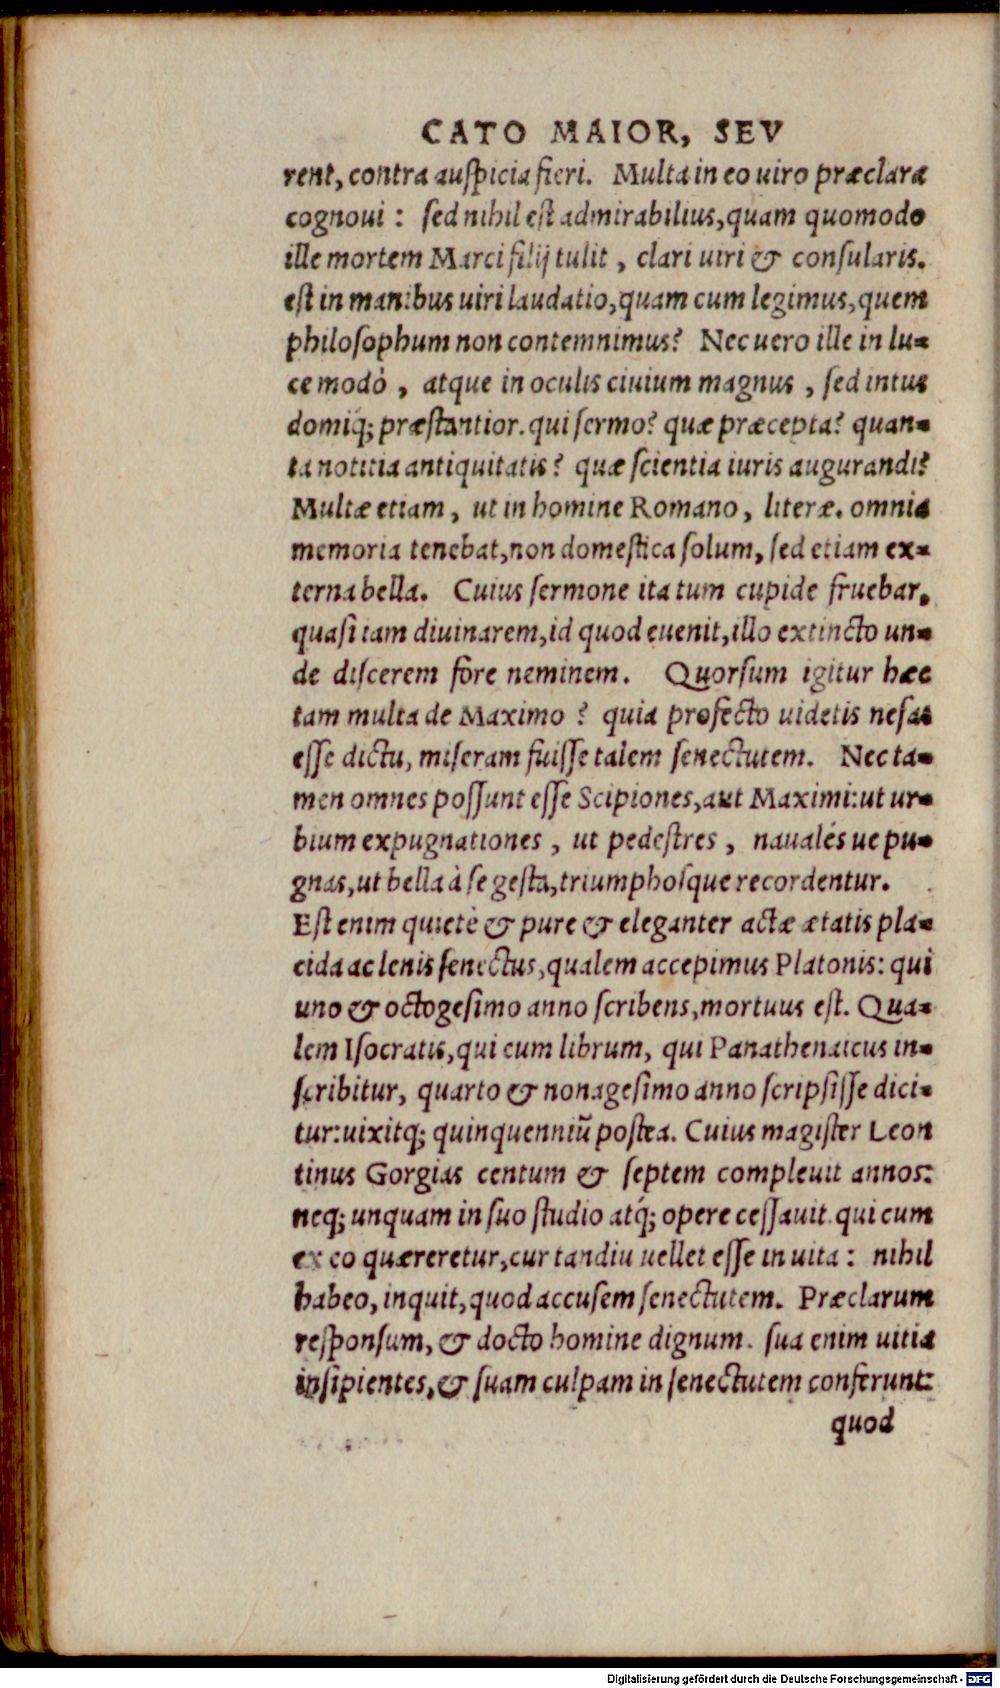 CATO MAIOR, SEV
rent, contra auspicia fieri. Multa in eo uiro præclara
cognoui : sed nihil est admirabilius, quam quomodo
ille mortem Marci filij tulit , clari uiri & consularis.
est in manibus uiri laudatio, quam cum legimus, quem
philosophum non contemnimus? Nec uero ille in lu-
ce modò , atque in oculis ciuium magnus , sed intus
domiq́; præstantior. qui sermo? quæ præcepta? quan-
ta notitia antiquitatis? quæ scientia iuris augurandi?
Multæ etiam , ut in homine Romano , literæ. omnia
memoria tenebat, non domestica solum, sed etiam ex-
terna bella. Cuius sermone ita tum cupide fruebar,
quasi iam diuinarem, id quod euenit, illo extincto un-
de discerem fore neminem. Quorsum igitur hæc
tam multa de Maximo ? quia profecto uidetis nefas
esse dictu, miseram fuisse talem senectutem. Nec ta-
men omnes possunt esse Scipiones, aut Maximi: ut ur-
bium expugnationes , ut pedestres , naualés ue pu-
gnas, ut bella à se gesta, triumphosque recordentur.
Est enim quietè & pure & eleganter actæ ætatis pla-
cida ac lenis senectus, qualem accepimus Platonis: qui
uno & octogesimo anno scribens, mortuus est. Qua-
lem Isocratis, qui cum librum, qui Panathenaicus in-
scribitur, quarto & nonagesimo anno scripsisse dici-
tur: uixitq; quinquenniũ postea. Cuius magister Leon
tinus Gorgias centum & septem compleuit annos:
neq; unquam in suo studio atq́; opere cessauit. qui cum
ex eo quæreretur, cur tandiu uellet esse in uita : nihil
habeo, inquit, quod accusem senectutem. Præclarum
responsum, & docto homine dignum. sua enim uitia
insipientes, & suam culpam in senectutem conferunt:
quod
Digitalisierung gefördert durch die Deutsche Forschungsgemeinschaft - DFG